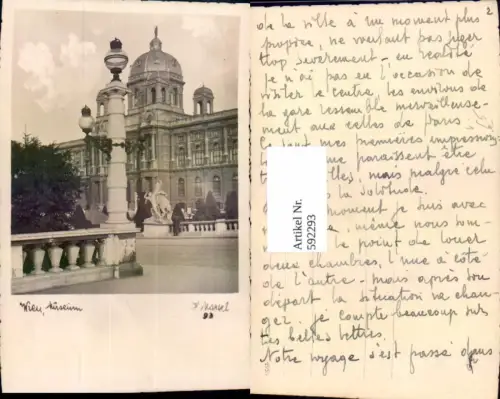 Wien, Museum
93
2
de la ville à un moment plus
propice, ne voulant pas juger
trop sévèrement - en réalité
je n'ai pas eu l'occasion de
visiter le centre, les environs de
la gare ressemble merveilleuse-
ment aux celles de Paris.
mes premières impressions
paraissent être
mais malgré celu
la solitude.
moment je suis avec
même nous som-
le point de louer
deux chambres, l'une à côté
de l'autre - mais après son
départ la situation va chan-
ger. je compte beaucoup sur
tes belles lettres.
Notre voyage s'est passé dans
Artikel Nr.
592293